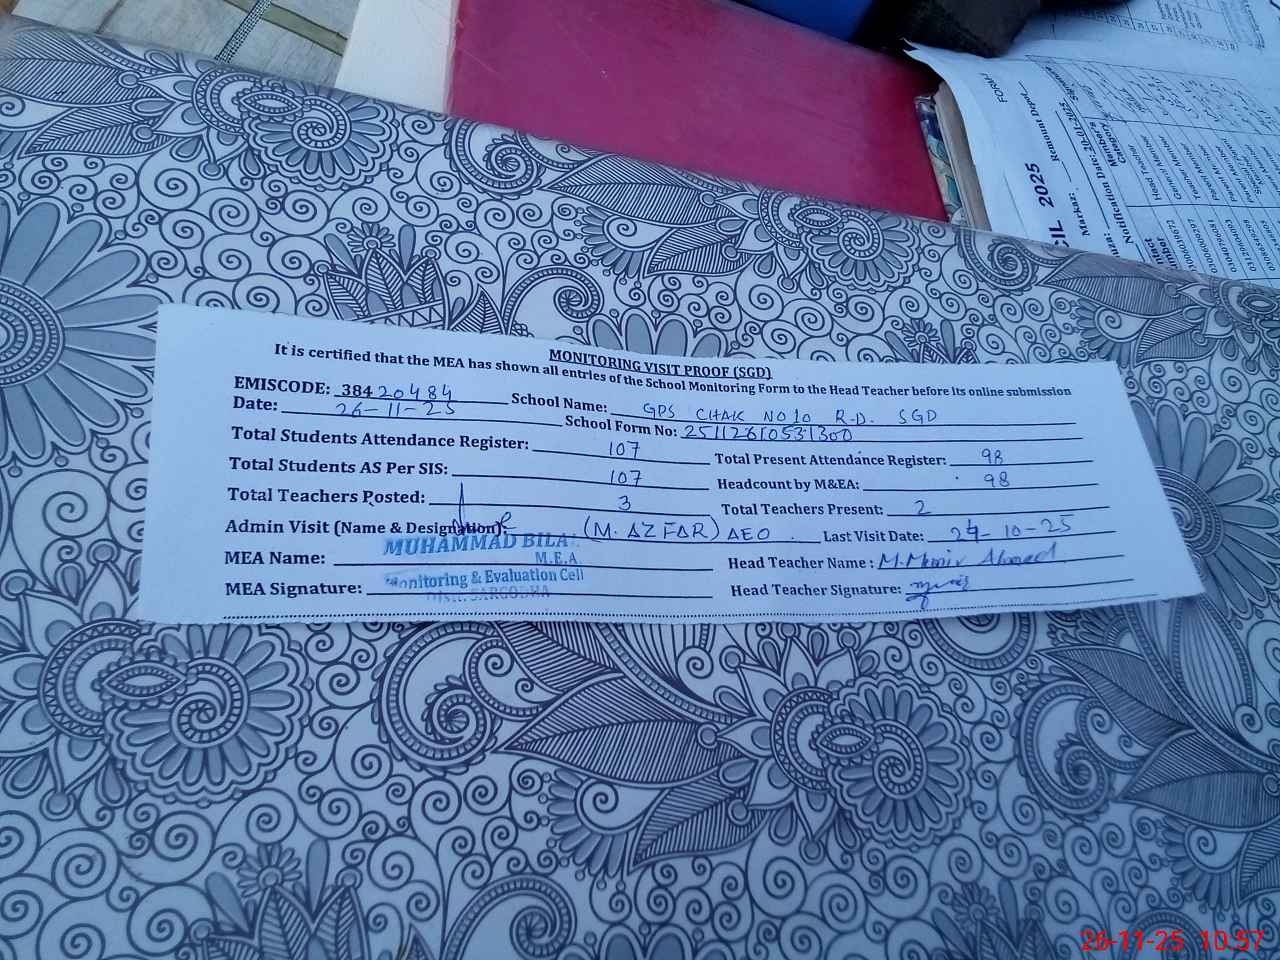 MONITORING VISIT PROOF (SGD)
It is certified that the MEA has shown all entries of the School Monitoring Form to the Head Teacher before its online submission
EMISCODE: 38420484 School Name: GPS CHAK NO 10 R.D. SGD
Date: 26-11-25 School Form No: 25112610531300
Total Students Attendance Register: 107 Total Present Attendance Register: 98
Total Students AS Per SIS: 107 Headcount by M&EA: 98
Total Teachers Posted: 3 Total Teachers Present: 2
Admin Visit (Name & Designation): (M. AZFAR) AEO Last Visit Date: 24-10-25
MUHAMMAD BILAL
MEA Name: M.E.A Head Teacher Name: M. Munir Ahmed
Monitoring & Evaluation Cell
MEA Signature: Head Teacher Signature:
Distt. SARGODHA
FORM
CIL 2025
Markaz: Remount Depot
Notification Date: 20-01-2025
Member's Category
Signature
Head Teacher
General Member
Teacher Member
Parent Member
Parent Member
26-11-25 10:57